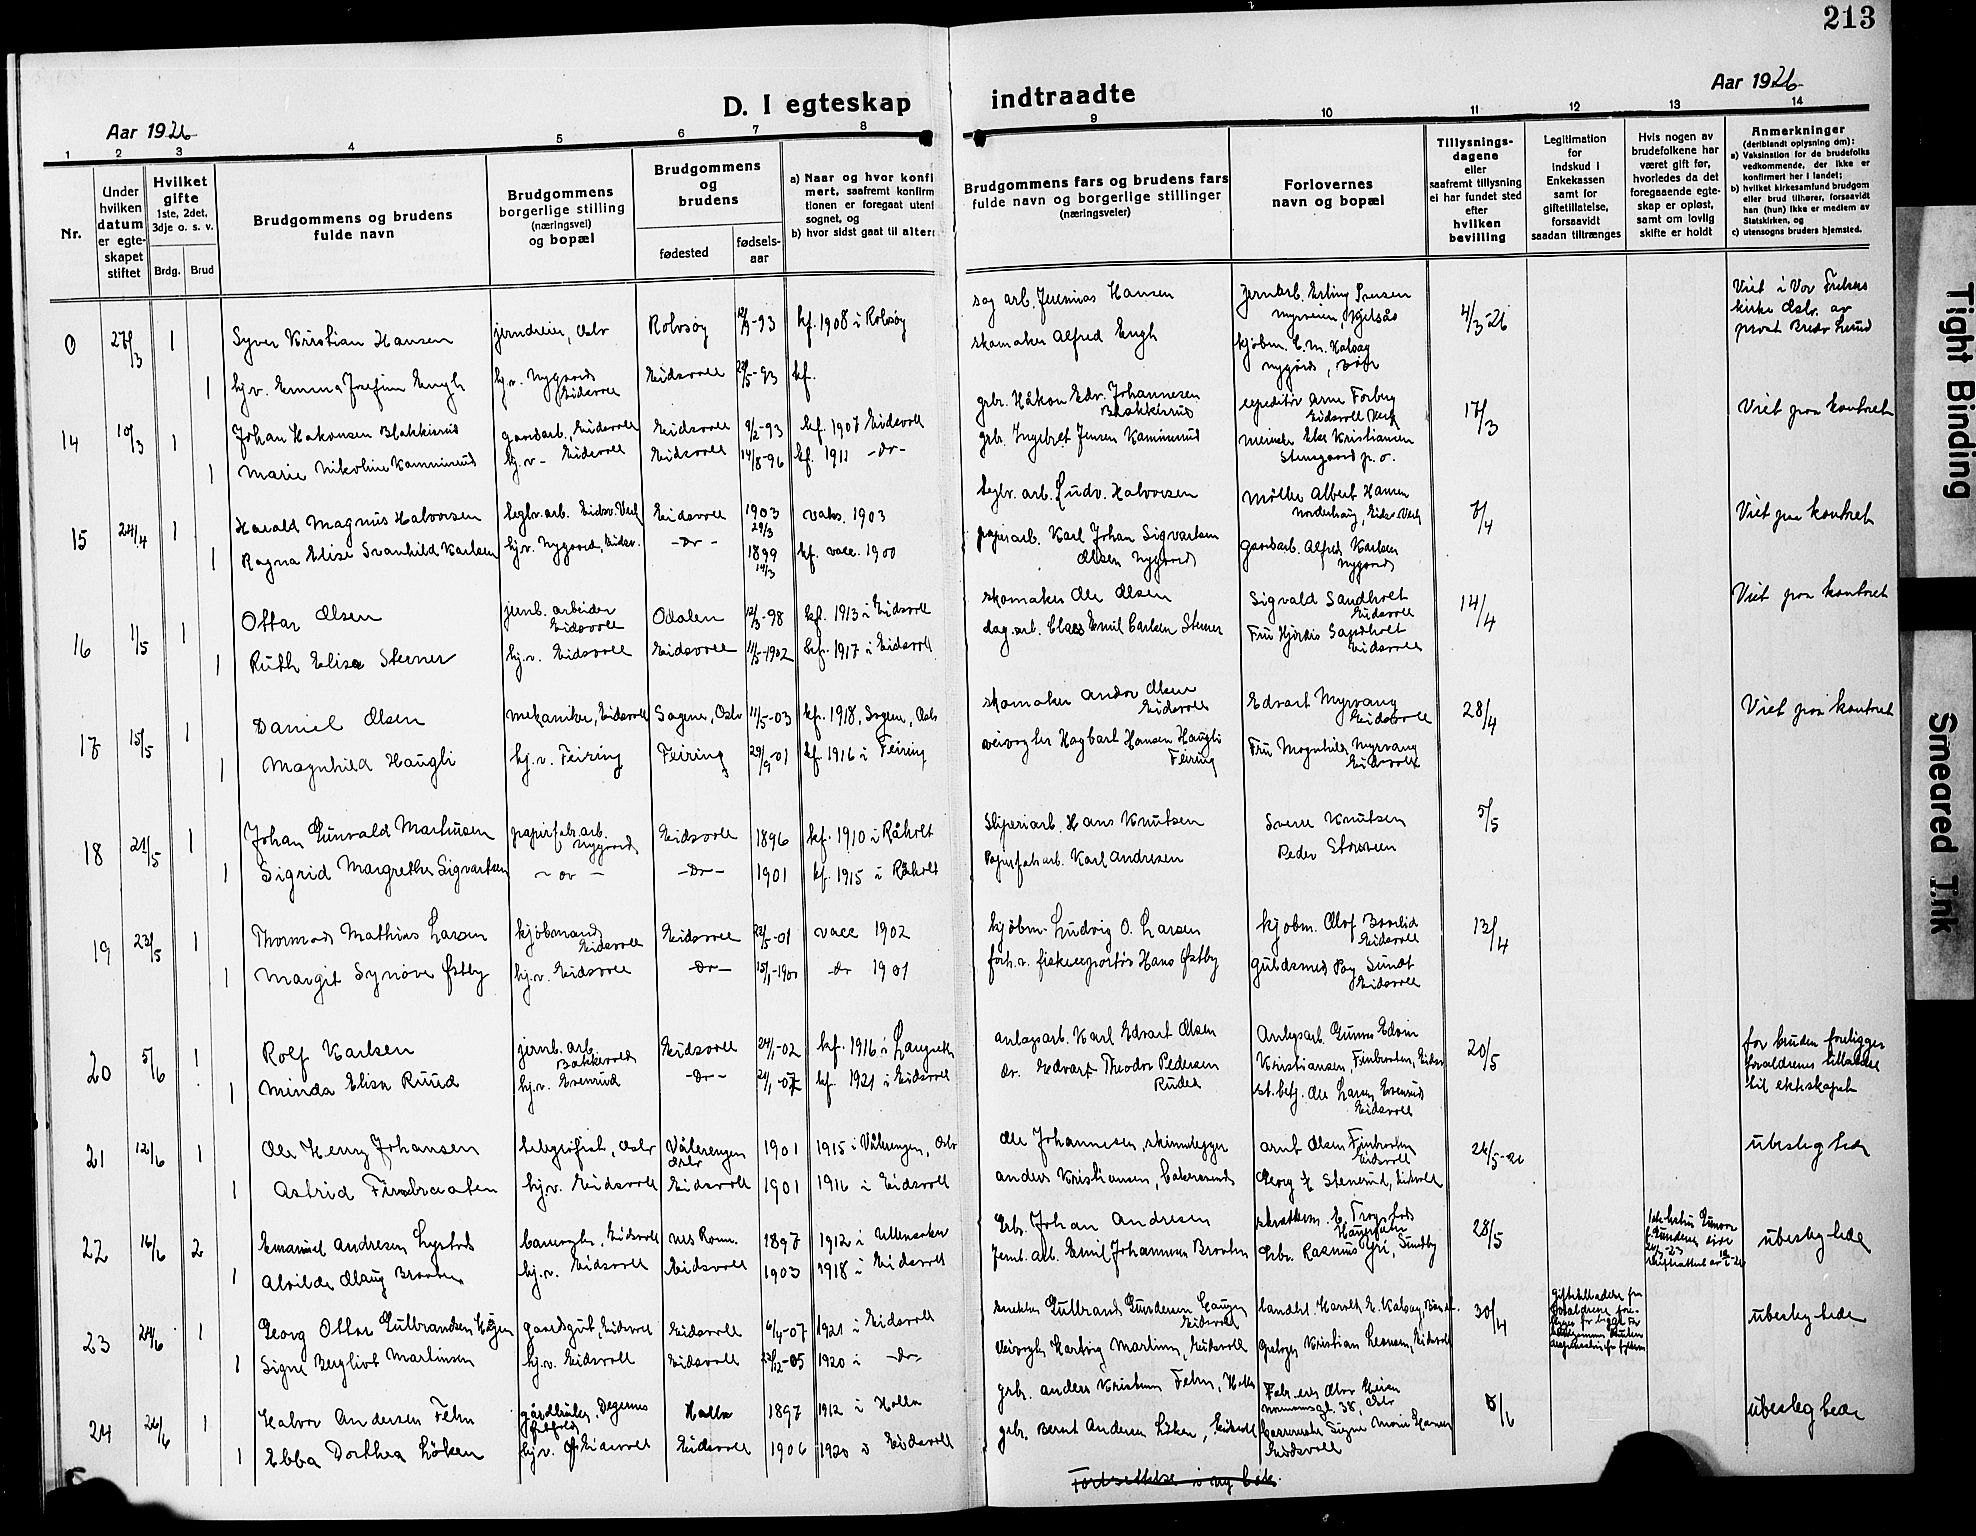 213
D. I egteskap indtraadte
Aar 1926
Aar 1926
1 2 3 4 5 6 7 8 9 10 11 12 13 14
Nr.
Under hvilken datum er egte-skapet stiftet
Hvilket gifte 1ste, 2det, 3dje o. s. v.
Brdg. Brud
Brudgommens og brudens fulde navn
Brudgommens borgerlige stilling (næringsvei) og bopæl
Brudgommens og brudens
fødested
fødsels-aar
a) Naar og hvor konfi
mert, saafremt konfirm
tionen er foregaat uten
sognet, og
b) hvor sidst gaat til alter
Brudgommens fars og brudens fars fulde navn og borgerlige stillinger (næringsveier)
Forlovernes navn og bopæl
Tillysnings-dagene eller saafremt tillysning ei har fundet sted efter hvilken bevilling
Legitimation for indskud i Enkekassen samt for giftetillatelse, forsaavidt saadan tiltrænges
Hvis nogen av brudefolkene har været gift før, hvorledes da det foregaaende egte-skap er opløst, samt om lovlig skifte er holdt
Anmerkninger (deriblandt oplysning om):
a) Vaksination for de brudefolks vedkommende, der ikke er konfirmert her i landet;
b) hvilket kirkesamfund brudgom eller brud tilhører, forsaavidt han (hun) ikke er medlem av Statskirken, og
c) utensogns bruders hjemsted.
0 27/3 1 Syver Kristian Hansen jerndreier, Oslo Rolvsøy 12/9-93 kf. 1908 i Rolvsøy sag arb. Jeremias Hansen jernarb. Erling Iversen 4/3-26 Viet i Vor Frelsers kirke Oslo av
1 hj.v. Emma Josefine Engh hj.v. Nygaard Eidsvoll Eidsvoll 28/5-93 kf. skomaker Alfred Engh kjøbm.
14 10/3 1 Johan Hakonsen Blakkisrud gaardarb., Eidsvoll Eidsvoll 9/2-93 kf. 1907 Eidsvoll grbr. Håkon Edv. Johannesen Blakkisrud expeditør Arne Forberg Eidsvoll Verk 17/3 Viet paa kontoret
1 Marie Nikoline Kamminrud hj.v - Eidsvoll Eidsvoll 14/8-96 kf. 1911 -do- grb. Ingebret Jensen Kamminrud Kristiansen
15 24/4 1 Harald Magnus Halvorsen teglv. arb. Eidsv. Verk Eidsvoll 1903 29/3 vaks. 1903 teglv. arb. Ludv. Halvorsen møller Albert Hansen Nordehaug, Eidsv Verk 7/4 Viet paa kontoret
1 Ragna Elise Svanhild Karlsen hj.v. Nygaard, Eidsv. -do- 1899 14/3 kf. vacc. 1900 papirarb. Karl Johan Sigvartsen Olsen Nygaard gaardarb. Alfred Karlsen Nygaard
16 1/5 1 Ottar Olsen jernb. arbeider Eidsvoll Odalen 12/3-98 kf. 1913 i Eidsvoll skomaker Ole Olsen Sigvald Sandholt Eidsvoll 14/4 Viet paa kontoret
1 Ruth Elise Sterner hj.v. Eidsvoll Eidsvoll 11/5-1902 kf. 1917 i Eidsvoll dag.arb. Claes Emil Carlsen Sterner Fru Hjørdis Sandholt Eidsvoll
17 15/5 1 Daniel Olsen mekaniker, Eidsvoll Sagene, Oslo 11/5-03 kf. 1918, Sagene, Oslo skomaker Andor Olsen Eidsvoll Edvart Myrvang Eidsvoll 28/4 Viet paa kontoret
1 Magnhild Haugli hj.v. Feiring Feiring 29/9-01 kf. 1916 i Feiring veivogter Hagbart Hansen Haugli Feiring Fru Magnhild Myrvang Eidsvoll
18 21/5 1 Johan Gunvald Marhusen papirfabr.arb. Nygaard Eidsvoll 1896 kf. 1910 i Råholt Sliperiarb. Hans Knutsen Sverre Knutsen 5/5
1 Sigrid Margrethe Sigvartsen - do - -do- 1901 kf. 1915 i Råholt Papirfabr.arb. Karl Andresen Peder
19 23/5 1 Thormod Mathias Larsen kjøbmand Eidsvoll Eidsvoll 22/5-01 vacc 1902 kjøbm. Ludvig O. Larsen kjøbm. Olof Eidsvoll 13/4
1 Margit Synøve Østby hj.v. Eidsvoll -do- 15/1-1900 do 1901 forh.v. fiskeexportør Hans Østby guldsmed Sundt Eidsvoll
20 5/6 1 Rolf Karlsen jernb. arb. Eidsvoll 24/1-02 kf. 1916 i Langseth anlagsarb. Karl Edvart Olsen Anlegsarb. Gunnar Edvin Kristiansen, Finbraaten, Eidsv 20/5 for bruden foreligger forældrenes tillatelse til ekteskapet
1 Minda Elisa Ruud hj.v. Esserud -do- 21/1-07 kf. 1921 i Eidsvoll do. Edvart Theodor Pedersen Ruder st.betj. Ole Larsen Esserud Eidsvoll
21 12/6 1 Ole Henry Johansen telegrafist, Oslo Vålerengen Oslo 1901 1915 i Vålerengen, Oslo Ole Johannesen, skinnelegger Arnt Olsen Finbraaten Eidsvoll 26/5-26 ubesleg tede
1 Astrid Finbraaten hj.v. Eidsvoll Eidsvoll 1901 1916 i Eidsvoll Anders Kristiansen, Georg Stenerud, Eidsvoll
22 16/6 2 Emanuel Andresen Lystad banevogter, Eidsvoll nes Rom. 1897 1912 i Ullensaker Grbr. Johan Andresen 28/5 ubesleg tede
1 Alvilde Olaug Braaten hj.v. Eidsvoll Eidsvoll 1903 1918 i Eidsvoll Jernb. arb. Emil Johannesen Braaten Grbr. Rasmus Gri, Sundby
23 24/6 1 Georg Ottar Gulbrandsen Haugen gaardsgut, Eidsvoll Eidsvoll 6/4-07 1921 i Eidsvoll snekker Gulbrand Gundersen Haugen Eidsvoll landh. Harald E. Kalvag 30/4 ubesleg tede
1 Signe Bergliot Martinsen hj.v. Eidsvoll Eidsvoll 23/12-05 1920 i -do- Veivogter Hartvig Martinsen, Eidsvoll Kristian Eidsvoll
24 26/6 1 Halvor Andersen Fehn gårdbruker, Degernes Østfold Holla 1897 1912 i Holla grbr. Anders Kristensen Fehn, Holla Fabr. eier Olav 38, Oslo 8/6 ubesleg tede
1 Ebba Dorthea Løken hj.v. Eidsvoll Eidsvoll 1906 1920 i Eidsvoll grbr. Bernt Andersen Løken, Eidsvoll Signe Marie Hansen Eidsvoll
Fortsettelse i ny bok.
Tight Binding
Smeared Ink